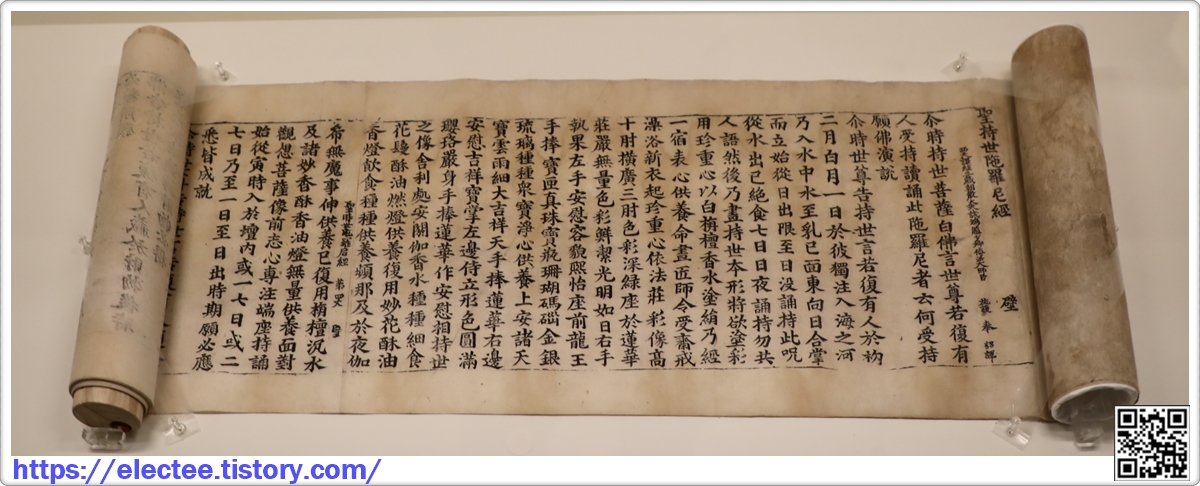 聖持世陁羅尼經 璧
施護 奉 詔譯
尒時持世菩薩白佛言世尊若復有
人受持讀誦此陁羅尼者云何受持
願佛演說
尒時世尊告持世言若復有人於初
二月白月一日於彼獨注入海之河
乃入水中水至乳已面東向日合掌
而立始從日出限至日没誦持此呪
從水出已絶食七日日夜誦持勿共
人語然後乃畫持世本形將欲塗彩
用珍重心以白栴檀香水塗絹乃經
一宿表心供養命畫匠師令受齋戒
澡浴新衣起珍重心依法莊彩像高
十肘橫廣三肘色彩深綠座於蓮華
莊嚴無量色彩鮮潔光明如日右手
執果左手安慰容貌熙怡座前龍王
手捧寶匣真珠寳瓶珊瑚碼碯金銀
琉璃種種衆寶淨心供養上安諸天
寶雲雨細大吉祥天手捧蓮華右邊
安慰吉祥寶掌左邊侍立形色圓滿
瓔珞嚴身手捧蓮華作安慰相持世
之像舍利處安閼伽香水種種細食
花鬘酥油燃燈供養復用妙花酥油
香燈飲食種種供養頞那及於夜伽
聖持世陁羅尼經 璧
希無魔事伸供養已復用栴檀汎水
及諸妙香酥香油燈無量供養面對
觀想菩薩像前志心專注端座持誦
始從寅時入於壇内或一七日或二
七日乃至一日至日出時期願必應
悉皆成就
https://electee.tistory.com/